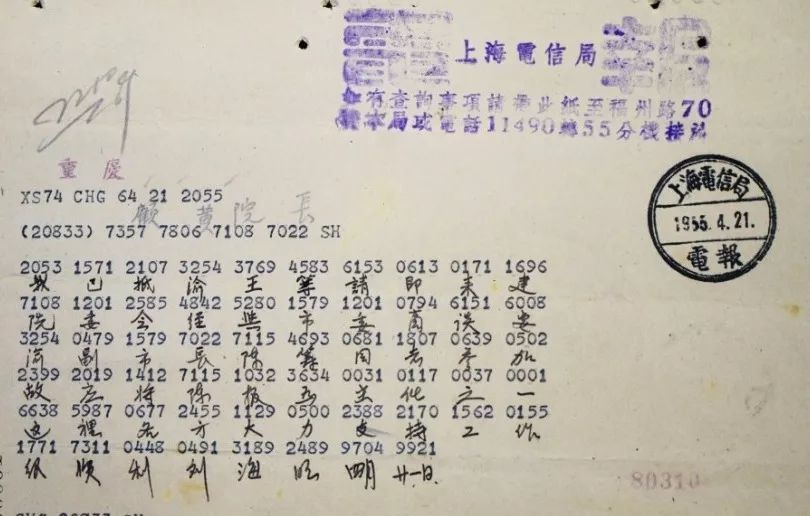 上海電信局
如有查詢事項請帶此紙至福州路70
號本局或電話11490轉55分機接洽
重慶
XS74 CHG 64 21 2055
顧黄院長
(20833) 7357 7806 7108 7022 SH
上海電信局
1955.4.21.
電報
2053 1571 2107 3254 3769 4583 6153 0613 0171 1696
已抵渝王等請即来建
7108 1201 2585 4842 5280 1579 1201 0794 6151 6008
院委会經與市委商談妥
3254 0479 1579 7022 7115 4693 0681 1807 0639 0502
渝副市長陳籌同志参加
2399 2019 1412 7115 1032 3634 0031 0117 0037 0001
故应将陳報主化之一
6638 5987 0677 2455 1129 0500 2388 2170 1562 0155
这裡各方大力支持工作
1771 7311 0448 0491 3189 2489 9704 9921
很順利到海 四月廿一日
80310